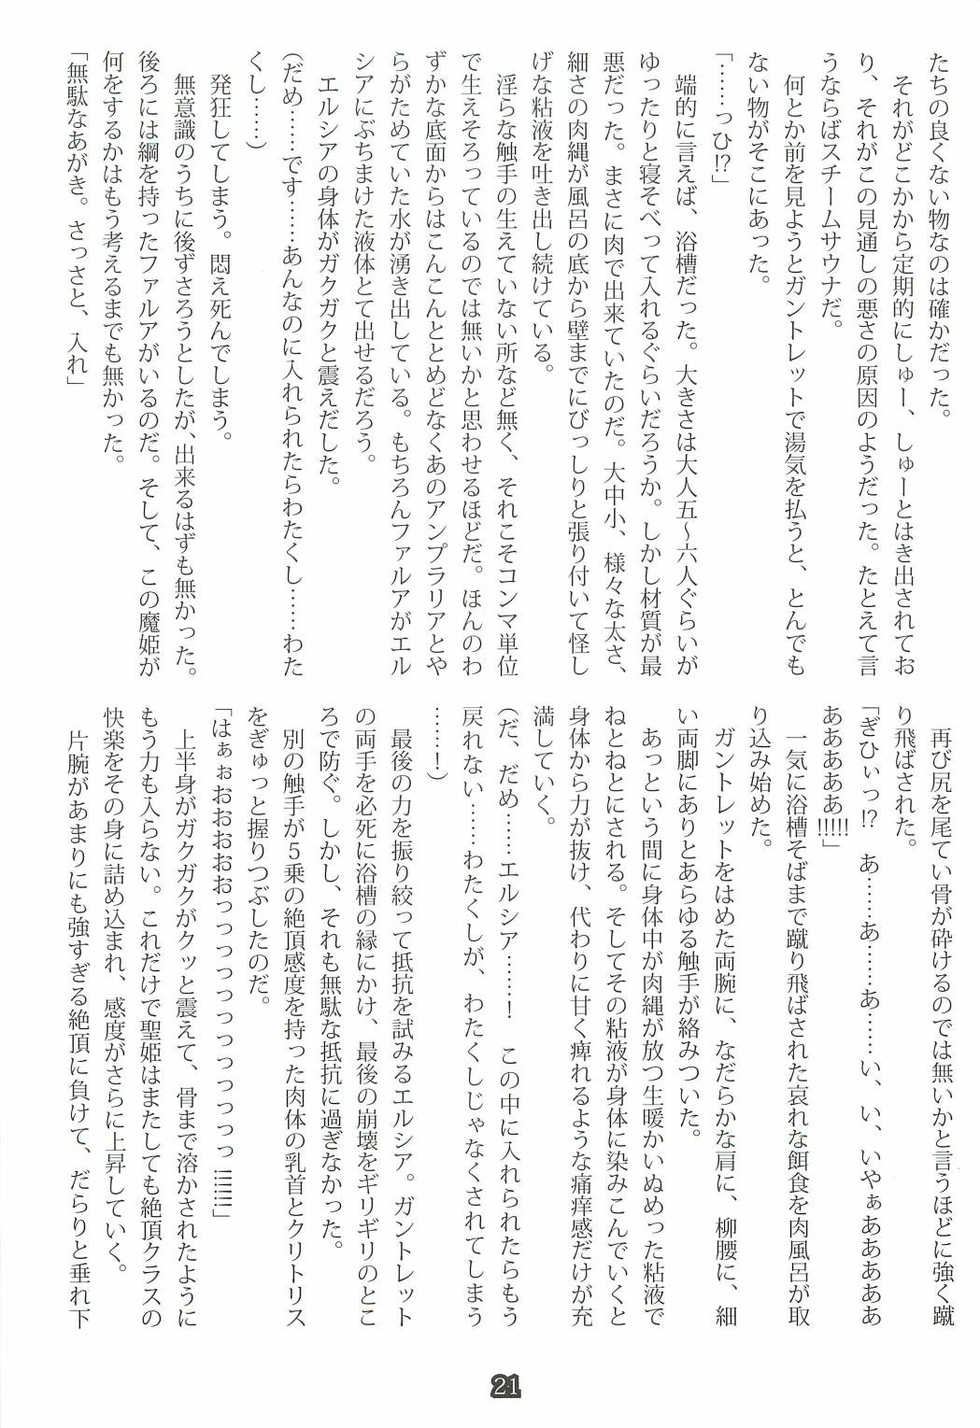 たちの良くない物なのは確かだった。
それがどこかから定期的にしゅー、しゅーとはき出されてお
り、それがこの見通しの悪さの原因のようだった。たとえて言
うならばスチームサウナだ。
何とか前を見ようとガントレットで湯気を払うと、とんでも
ない物がそこにあった。
「……っひ!?」
端的に言えば、浴槽だった。大きさは大人五〜六人ぐらいが
ゆったりと寝そべって入れるぐらいだろうか。しかし材質が最
悪だった。まさに肉で出来ていたのだ。大中小、様々な太さ、
細さの肉縄が風呂の底から壁までにびっしりと張り付いて怪し
げな粘液を吐き出し続けている。
淫らな触手の生えていない所など無く、それこそコンマ単位
で生えそろっているのでは無いかと思わせるほどだ。ほんのわ
ずかな底面からはこんこんととめどなくあのアンプラリアとや
らがためていた水が湧き出している。もちろんファルアがエル
シアにぶちまけた液体とて出せるだろう。
エルシアの身体がガクガクと震えだした。
（だめ……です……あんなのに入れられたらわたくし……わた
くし……）
発狂してしまう。悶え死んでしまう。
無意識のうちに後ずさろうとしたが、出来るはずも無かった。
後ろには綱を持ったファルアがいるのだ。そして、この魔姫が
何をするかはもう考えるまでも無かった。
「無駄なあがき。さっさと、入れ」
再び尻を尾てい骨が砕けるのでは無いかと言うほどに強く蹴
り飛ばされた。
「ぎひぃっ!?　あ……あ……あ……い、い、いやぁあああああ
あああああ!!!!!」
一気に浴槽そばまで蹴り飛ばされた哀れな餌食を肉風呂が取
り込み始めた。
ガントレットをはめた両腕に、なだらかな肩に、柳腰に、細
い両脚にありとあらゆる触手が絡みついた。
あっという間に身体中が肉縄が放つ生暖かいぬめった粘液で
ねとねとにされる。そしてその粘液が身体に染みこんでいくと
身体から力が抜け、代わりに甘く痺れるような痛痒感だけが充
満していく。
（だ、だめ……エルシア……！　この中に入れられたらもう
戻れない……わたくしが、わたくしじゃなくされてしまう
……！）
最後の力を振り絞って抵抗を試みるエルシア。ガントレット
の両手を必死に浴槽の縁にかけ、最後の崩壊をギリギリのとこ
ろで防ぐ。しかし、それも無駄な抵抗に過ぎなかった。
別の触手が５乗の絶頂感度を持った肉体の乳首とクリトリス
をぎゅっと握りつぶしたのだ。
「はぁぉぉおおおおおっっっっっっっっっっ!!!!!!」
上半身がガクガクがクッと震えて、骨まで溶かされたように
もう力も入らない。これだけで聖姫はまたしても絶頂クラスの
快楽をその身に詰め込まれ、感度がさらに上昇していく。
片腕があまりにも強すぎる絶頂に負けて、だらりと垂れ下
21